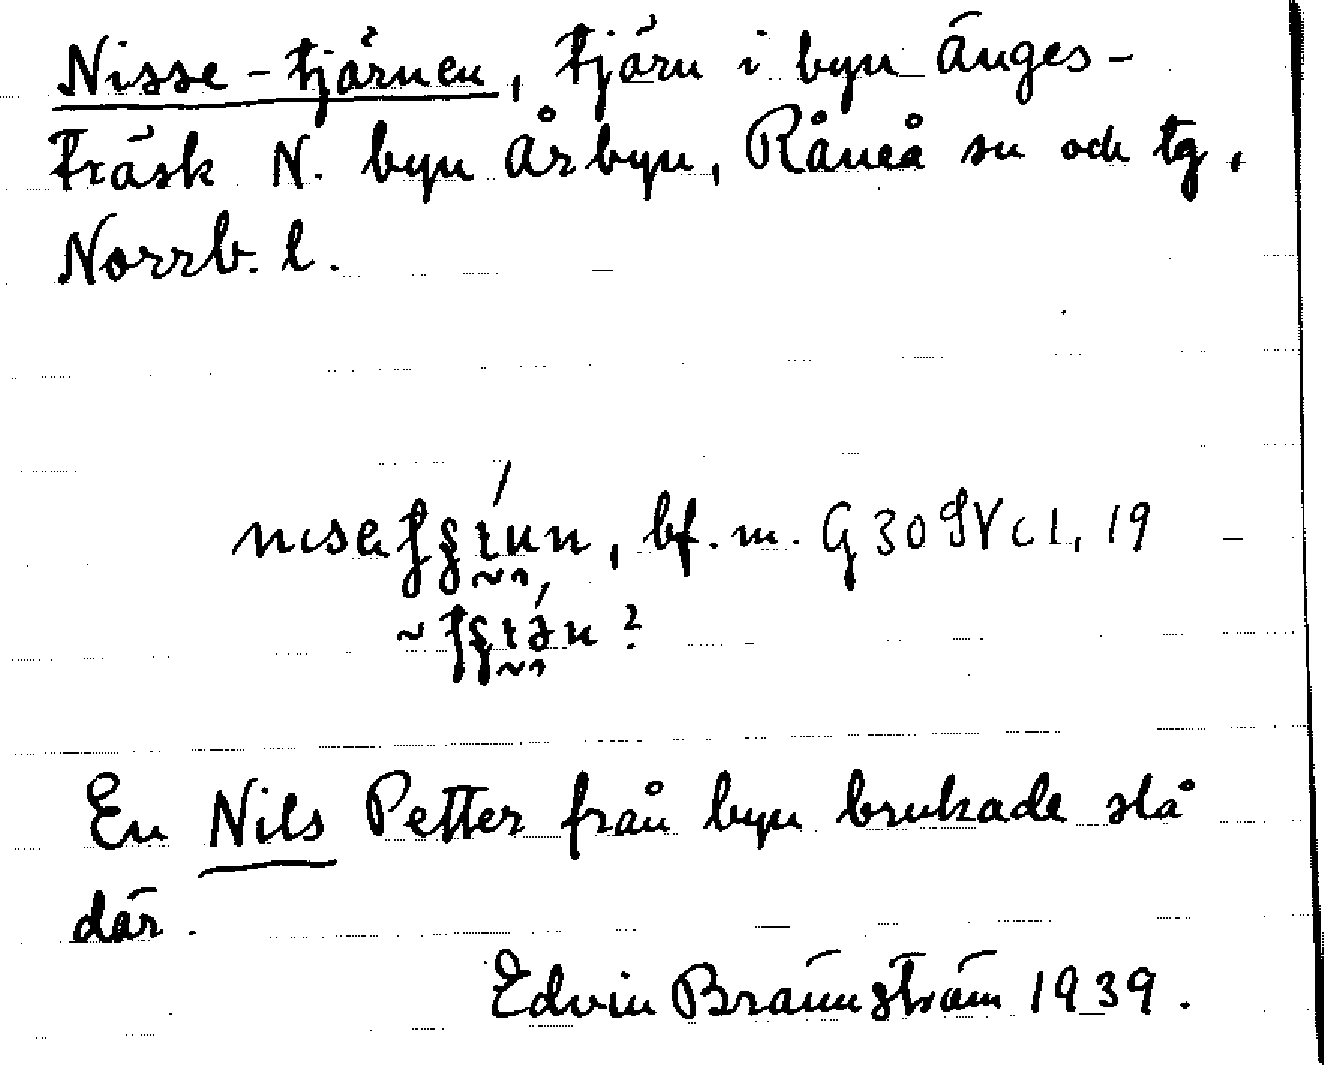 Nisse-tjärnen, tjärn i byn Änges-
träsk N. byn Årbyn, Råneå sn och tg,
Norrb. l.
bf. m. G 30 SV c 1, 19
En Nils Petter från byn brukade slå
där.
Edvin Brännström 1939.